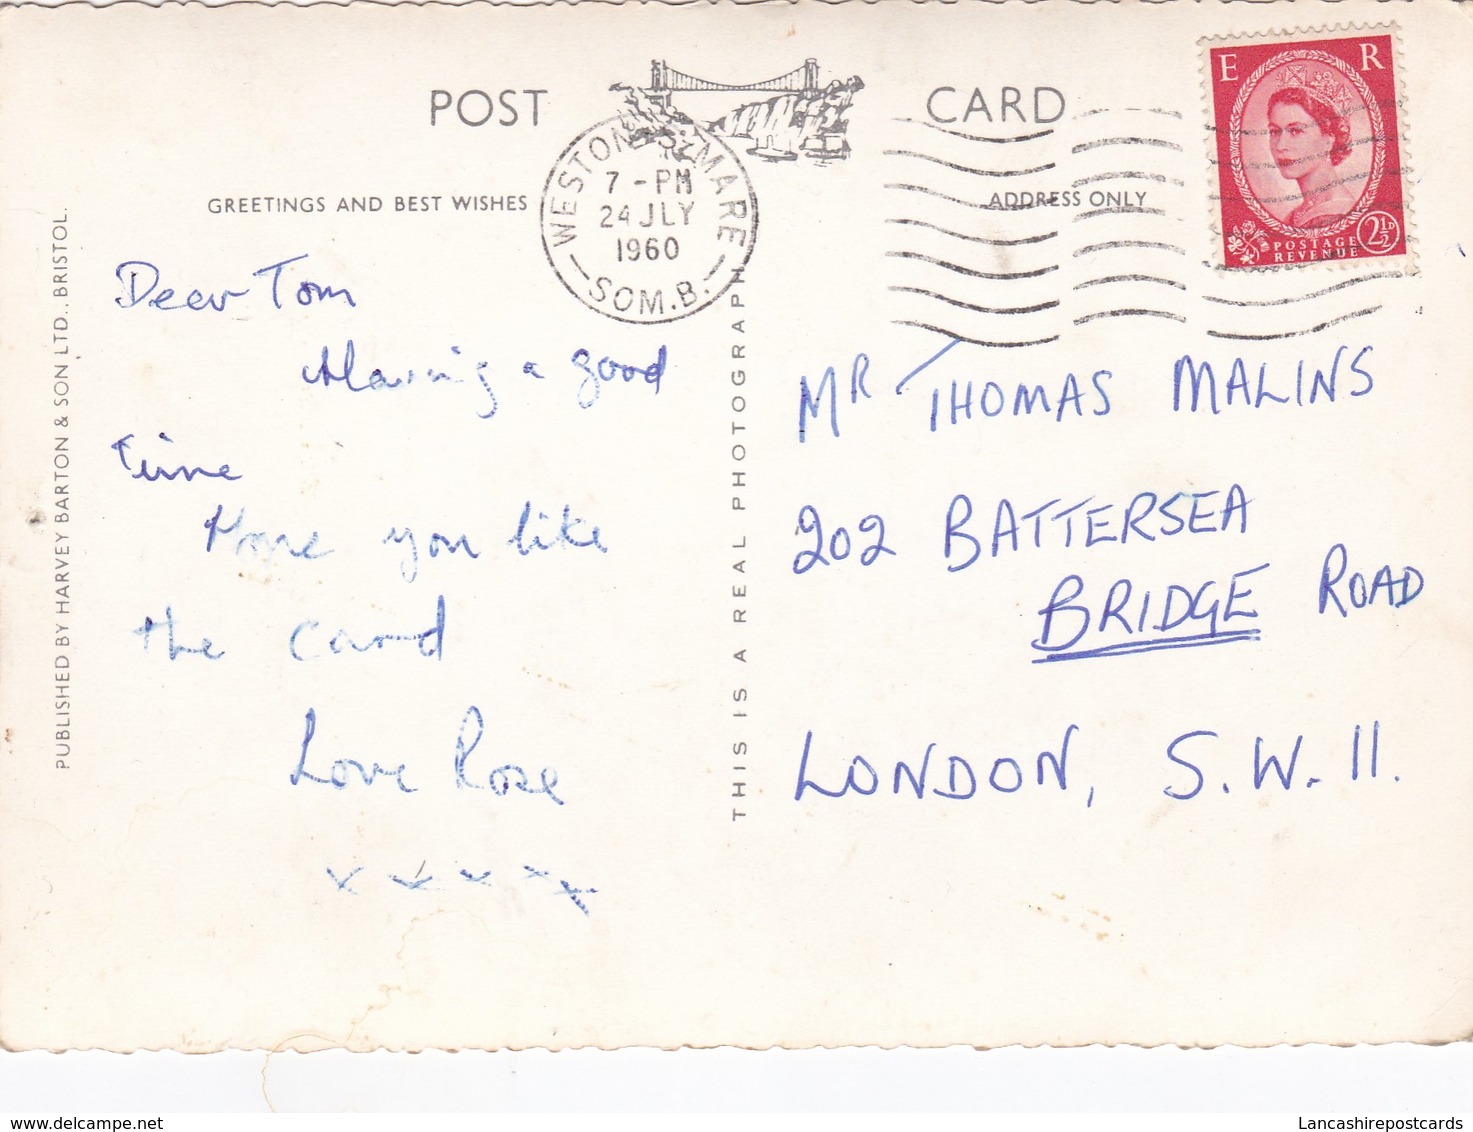 POST CARD
GREETINGS AND BEST WISHES
ADDRESS ONLY
WESTON-S-MARE
7-PM
24 JLY
1960
SOM.B.
E R
POSTAGE
REVENUE
2½D
PUBLISHED BY HARVEY BARTON & SON LTD., BRISTOL.
THIS IS A REAL PHOTOGRAPH
Dear Tom
Having a good
time
Hope you like
the card
Love Rose
x x x x x
MR THOMAS MALINS
202 BATTERSEA
BRIDGE ROAD
LONDON, S.W.11.
delcampe.net
Lancashirepostcards